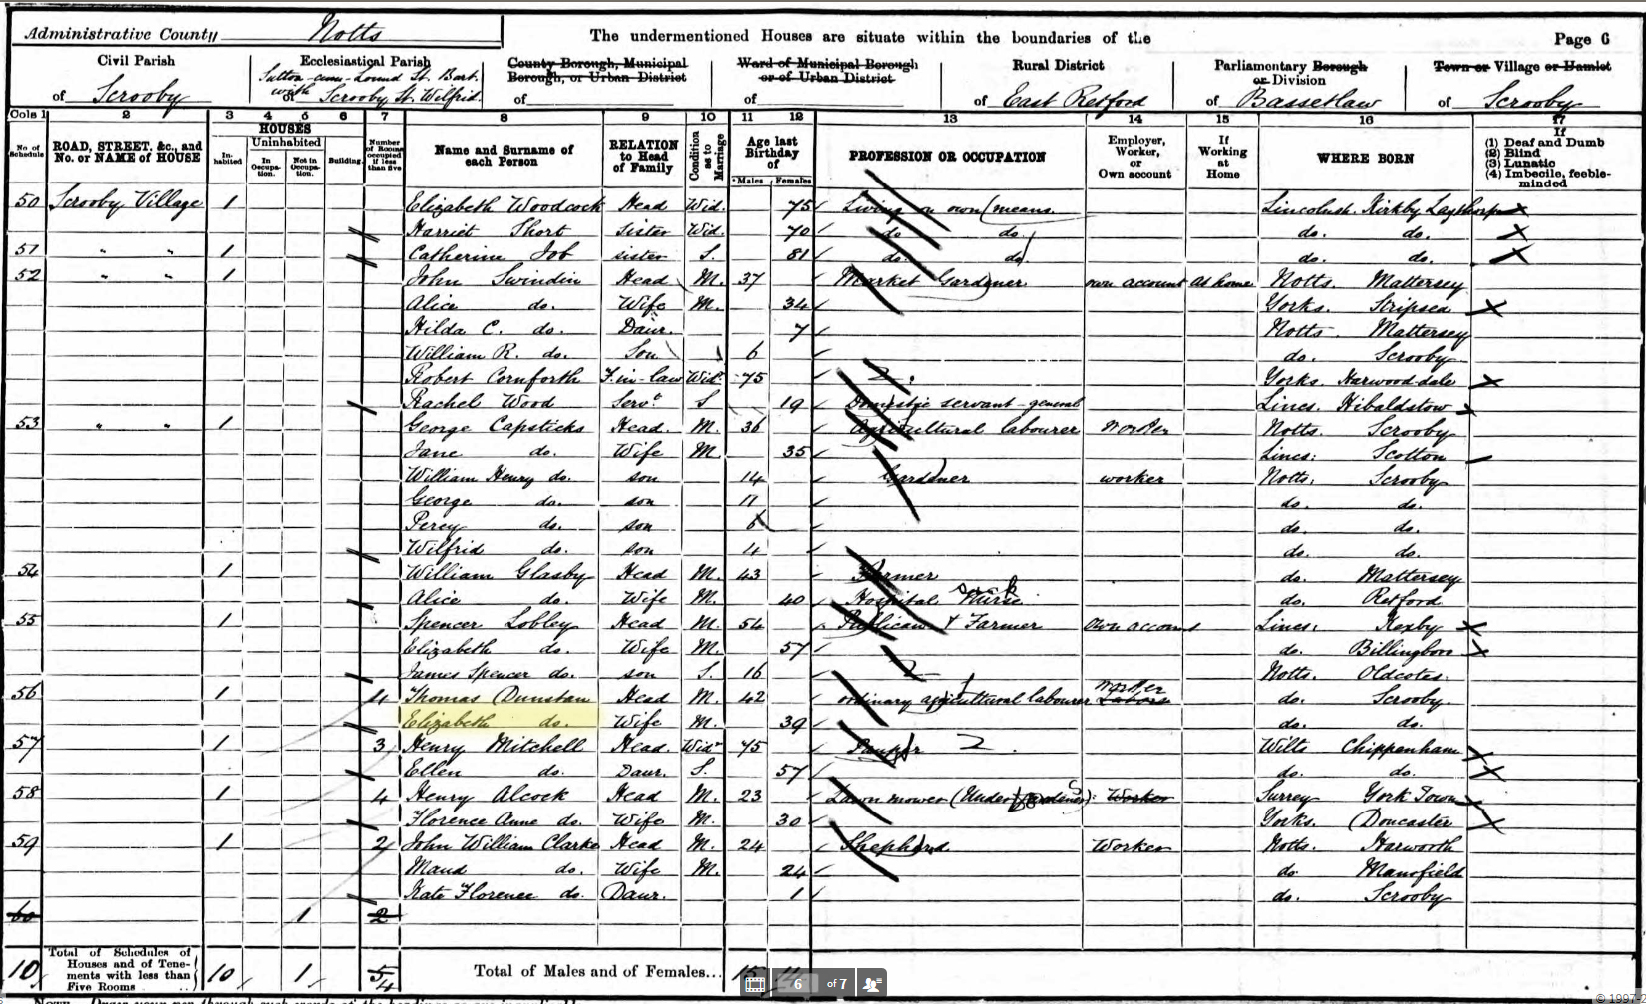 Administrative County Notts The undermentioned Houses are situate within the boundaries of the Page 6
Civil Parish Ecclesiastical Parish County Borough, Municipal Borough, or Urban District Ward of Municipal Borough or of Urban District Rural District Parliamentary Borough or Division Town or Village or Hamlet
of Scrooby Sutton-cum-Lound St. Bart. with of Scrooby St. Wilfrid. of of of East Retford of Bassetlaw of Scrooby
Cols 1 2 3 4 5 6 7 8 9 10 11 12 13 14 15 16 17
No. of Schedule ROAD, STREET, &c., and No. or NAME of HOUSE HOUSES Inhabited Uninhabited In Occupation. Not in Occupation. Building. Number of Rooms occupied if less than five Name and Surname of each Person RELATION to Head of Family Condition as to Marriage Age last Birthday of Males Females PROFESSION OR OCCUPATION Employer, Worker, or Own account If Working at Home WHERE BORN If (1) Deaf and Dumb (2) Blind (3) Lunatic (4) Imbecile, feeble-minded
50 Scrooby Village 1 Elizabeth Woodcock Head Wid. 75 Living on own means Lincolnsh. Kirkby
Harriet Short sister Wid. 70 do do. do. do.
51 " " 1 Catherine Job sister S. 81 do. do do. do.
52 " " 1 John Swindin Head M. 37 Market Gardener own account At home Notts. Mattersey
Alice do. Wife M. 34 Yorks. Skipsea
Hilda C. do. Daur. 7 Notts. Mattersey
William R. do. Son 6 do. Scrooby
Robert Cornforth F.in-law Widr 75 2. Yorks. Harwood-dale
Rachel Wood Servt. S 19 Domestic servant-general Lincs. Hibaldstow
53 " " 1 George Capsticks Head. M. 36 Agricultural labourer worker Notts. Scrooby
Jane do. Wife M 35 Lincs: Scotton
William Henry do. son 14 Gardener worker Notts. Scrooby
George do. son 11 do. do.
Percy do. son 6 do. do.
Wilfrid do. son 4 do. do.
54 1 William Glasby Head M. 43 Farmer do. Mattersey
Alice do. Wife M. 40 Hospital Nurse sick do. Retford
55 1 Spencer Lobley Head M. 54 Publican & Farmer Own account Lincs. Kexby
Elizabeth do. Wife M. 57 do. Billingboro
James Spencer do. son S. 16 2 Notts. Oldcotes.
56 1 4 Thomas Dunstan Head M. 42 ordinary agricultural labourer worker do. Scrooby
Elizabeth do. Wife M. 39 do. do.
57 1 3 Henry Mitchell Head. Widr 75 Pauper 2. Wilts Chippenham
Ellen do. Daur. S. 57 do. do.
58 1 4 Henry Alcock Head M. 23 Lawn mower (Under Gardener): Worker Surrey York Town
Florence Anne do. Wife M. 30 Yorks. Doncaster
59 1 2 John William Clarke Head M. 24 Shepherd Worker Notts. Harworth
Maud do. Wife M. 24 do. Mansfield
Kate Florence do. Daur. 1 do. Scrooby
60 1 2
10 Total of Schedules of Houses and of Tenements with less than Five Rooms 10 1 5 4 Total of Males and of Females... 15
6 of 7
© 1997-2